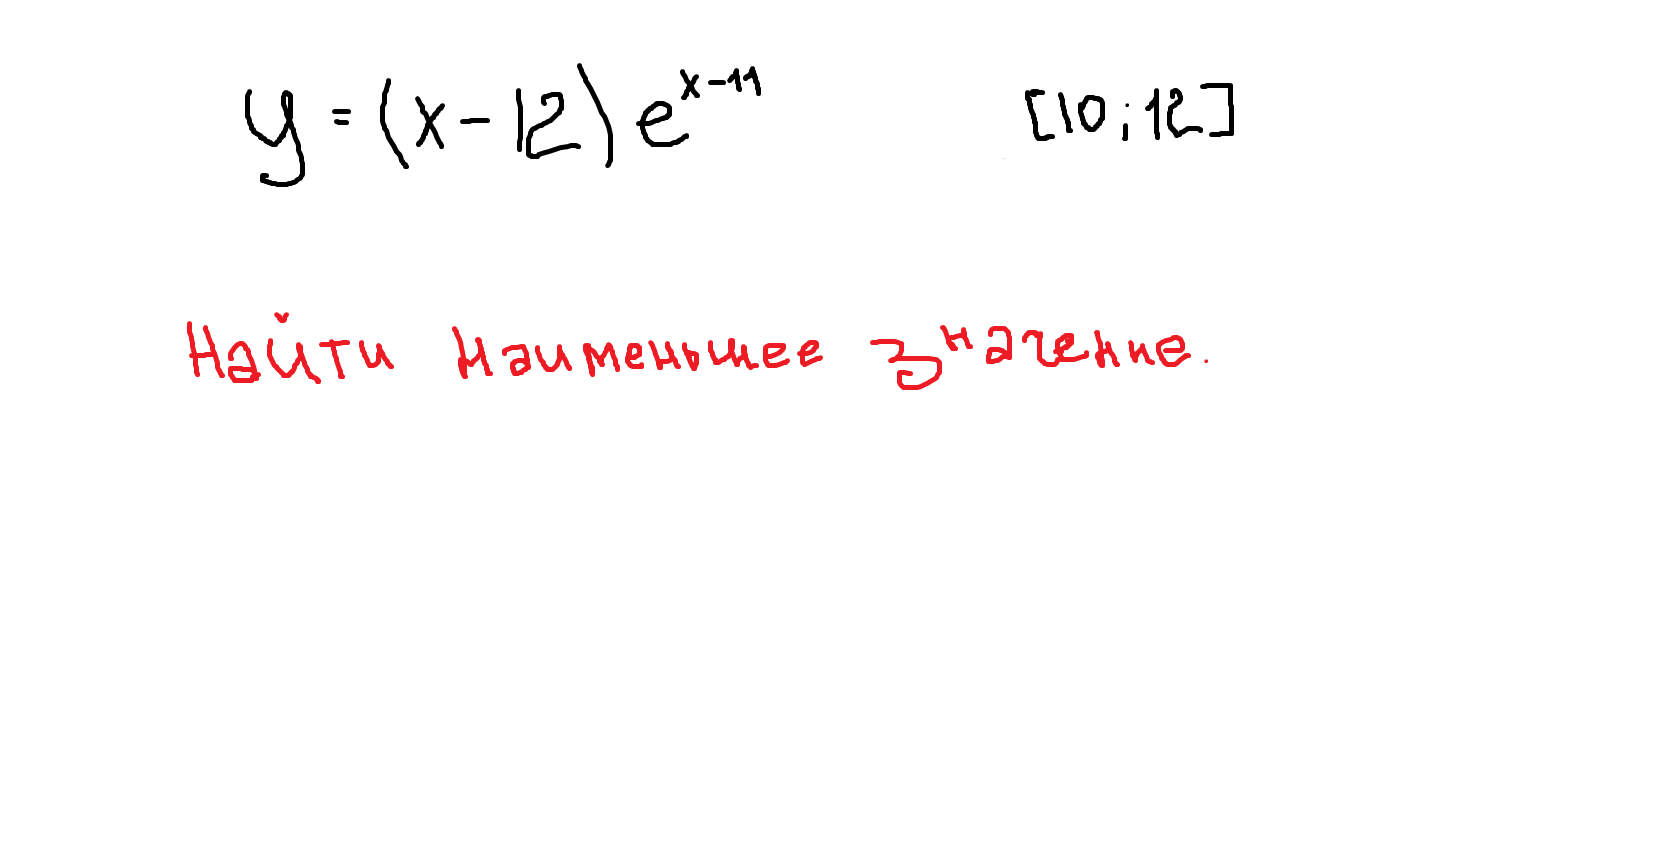 y = (x - 12) e^{x-11} [10; 12]
Найти наименьшее значение.